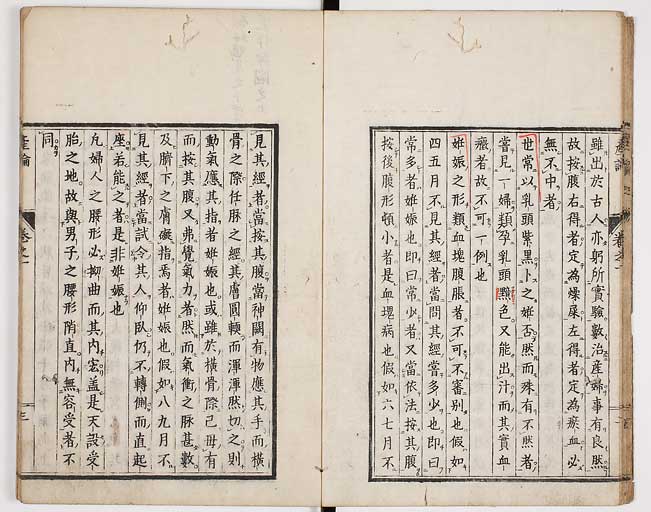 雖出於古人亦躬所實驗數治産婦事有良然
故按腹右得者定為燥屎左得者定為瘀血必
無不中者
世常以乳頭紫黒卜之娠否然而殊有不然者
嘗見一婦類孕乳頭黯色又能出汁而其實血
癥者故不可一例也
姙娠之形類血塊腹脹者不可不審别也假如
四五月不見其經者當問其經當多少也即曰
常多者姙娠也即曰常少者又當依法按其腹
按後腹形頓小者是血塊病也假如六七月不
見其經者當按其腹當神闕有物應其手而横
骨之際任脉之經其膚圓輭而渾渾然切之則
動氣應其指者姙娠也或雖於横骨際已毌有
而按其腹又弗覺氣力者然而氣衝之脉甚數
及臍下之膚礙指焉者姙娠也假如八九月不
見其經者當試令其人仰臥仍不轉側而直起
座若能之者是非姙娠也
凡婦人之腰形必抝曲而其内宏蓋是天設受
胎之地故與男子之腰形陗直内無容受者不
同
産論
卷之一